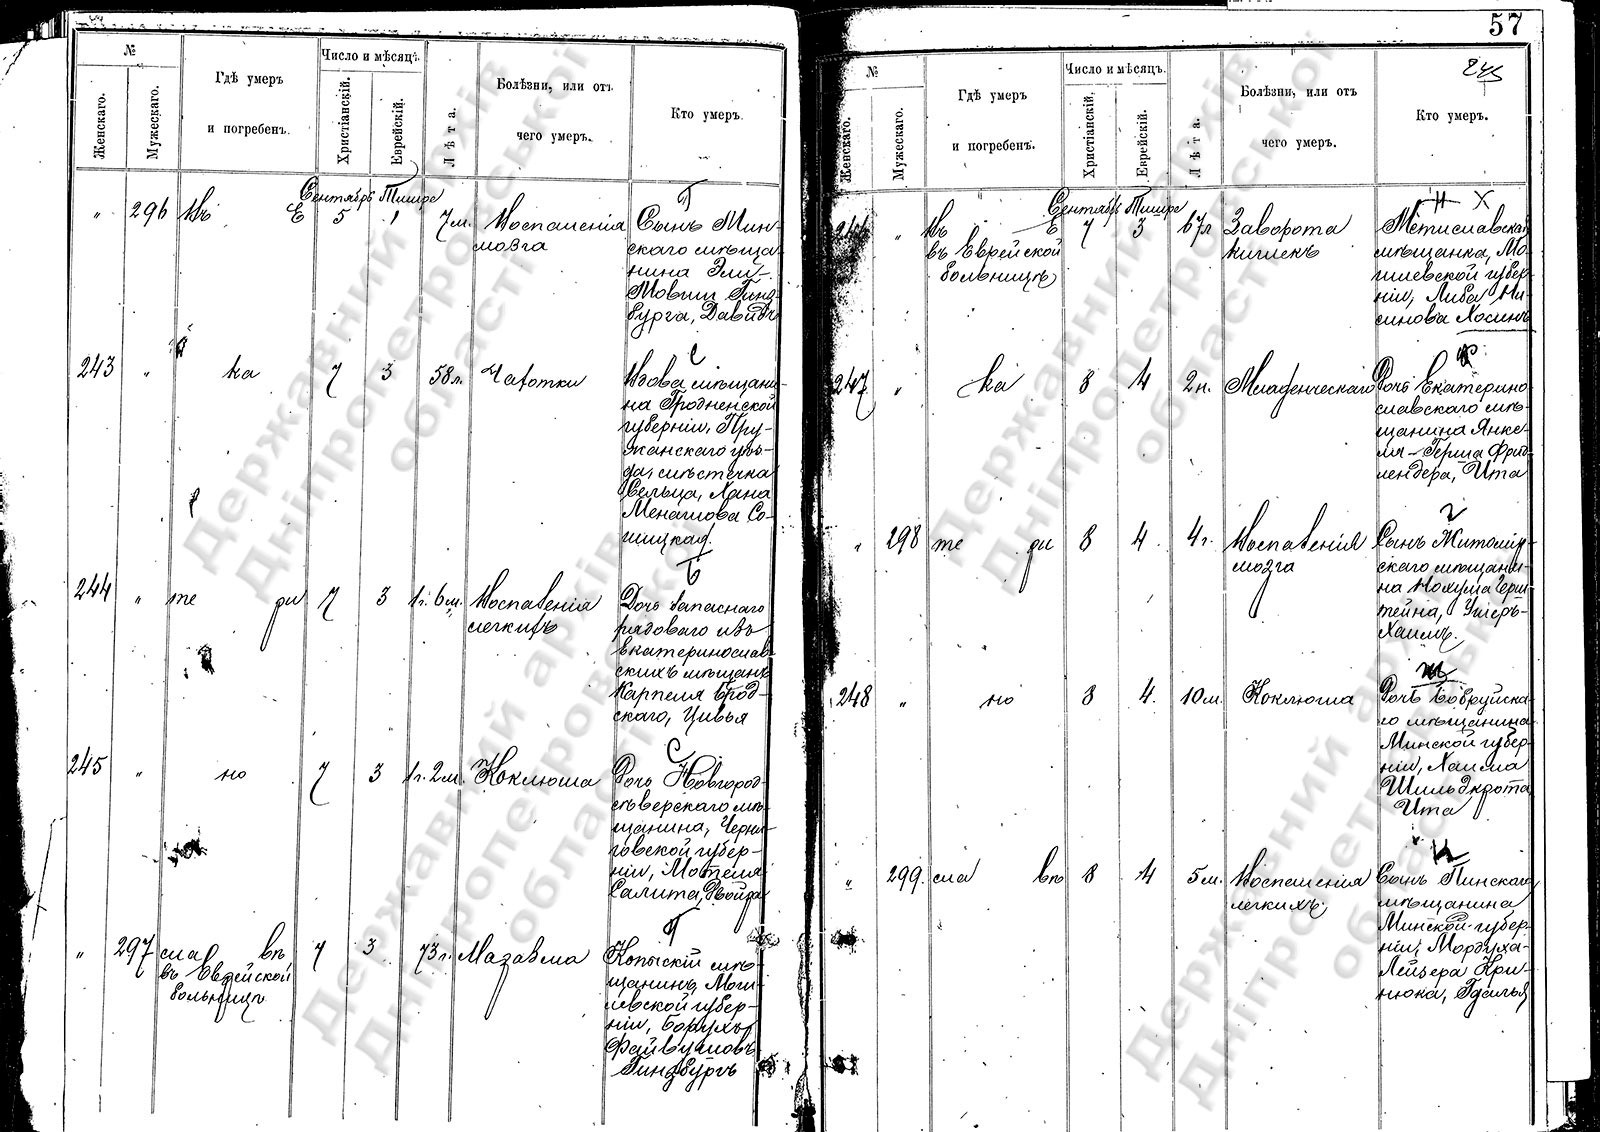 №
Женскаго.
Мужескаго.
Гдѣ умеръ
и погребенъ.
Число и мѣсяцъ.
Христіанскій.
Еврейскій.
Лѣта.
Болѣзни, или отъ
чего умеръ.
Кто умеръ.
Сентябрь Тишре
" 296 Въ Е 5 1 7 м. Воспаленія
мозга
Сынъ Мин-
скаго мѣща-
нина Эли-
Мовши Гинз-
бурга, Давидъ
243 " ка 7 3 58 л. Чахотки
Вдова мѣщани-
на Гродненской
губерніи, Пру-
жанскаго уѣз-
да, мѣстечка
Сельца, Хана
Менашова Со-
244 " те ри 7 3 1 г. 6 м. Воспаленія
легкихъ
Дочь запаснаго
рядоваго изъ
екатеринослав-
скихъ мѣщанъ
Карпеля Брод-
скаго, Цивья
245 " но 7 3 1 г. 2 м. Коклюша
Дочь Новгород-
сѣверскаго мѣ-
щанина, Черни-
говской губер-
ніи, Мотеля
Салита, Двойра
" 297 сла вѣ 7 3 73 г. Маразма
въ Еврейской
больницѣ
Копыскій мѣ-
щанинъ, Моги-
левской губер-
ніи, Борухъ
Файвушовъ
Гинзбургъ
57
245
№
Женскаго.
Мужескаго.
Гдѣ умеръ
и погребенъ.
Число и мѣсяцъ.
Христіанскій.
Еврейскій.
Лѣта.
Болѣзни, или отъ
чего умеръ.
Кто умеръ.
Сентябрь Тишре
246 " Въ Е 7 3 67 л Заворота
въ Еврейской
больницѣ
кишекъ
Мстиславская
мѣщанка, Мо-
гилевской губер-
ніи, Либа Ни-
синова Хосинъ
247 " ка 8 4 2 н. Младенческаго
Дочь Екатерино-
славскаго мѣ-
щанина Янке-
ля-Герша Фрид-
лендера, Ита
" 298 те ри 8 4 4 г. Воспаленія
мозга
Сынъ Житомір-
скаго мѣщани-
на Нохума Герш-
тейна, Ушеръ-
Хаимъ.
248 " но 8 4 10 м. Коклюша
Дочь Бобруйска-
го мѣщанина
Минской губер-
ніи, Хаима
Шильдкрота
Ита
" 299. сла вѣ 8 4 5 м. Воспаленія
легкихъ
Сынъ Пинскаго
мѣщанина
Минской губер-
ніи, Мордуха-
Лейзера Кри-
нюка, Гдалья
Державний архів
Дніпропетровської
області